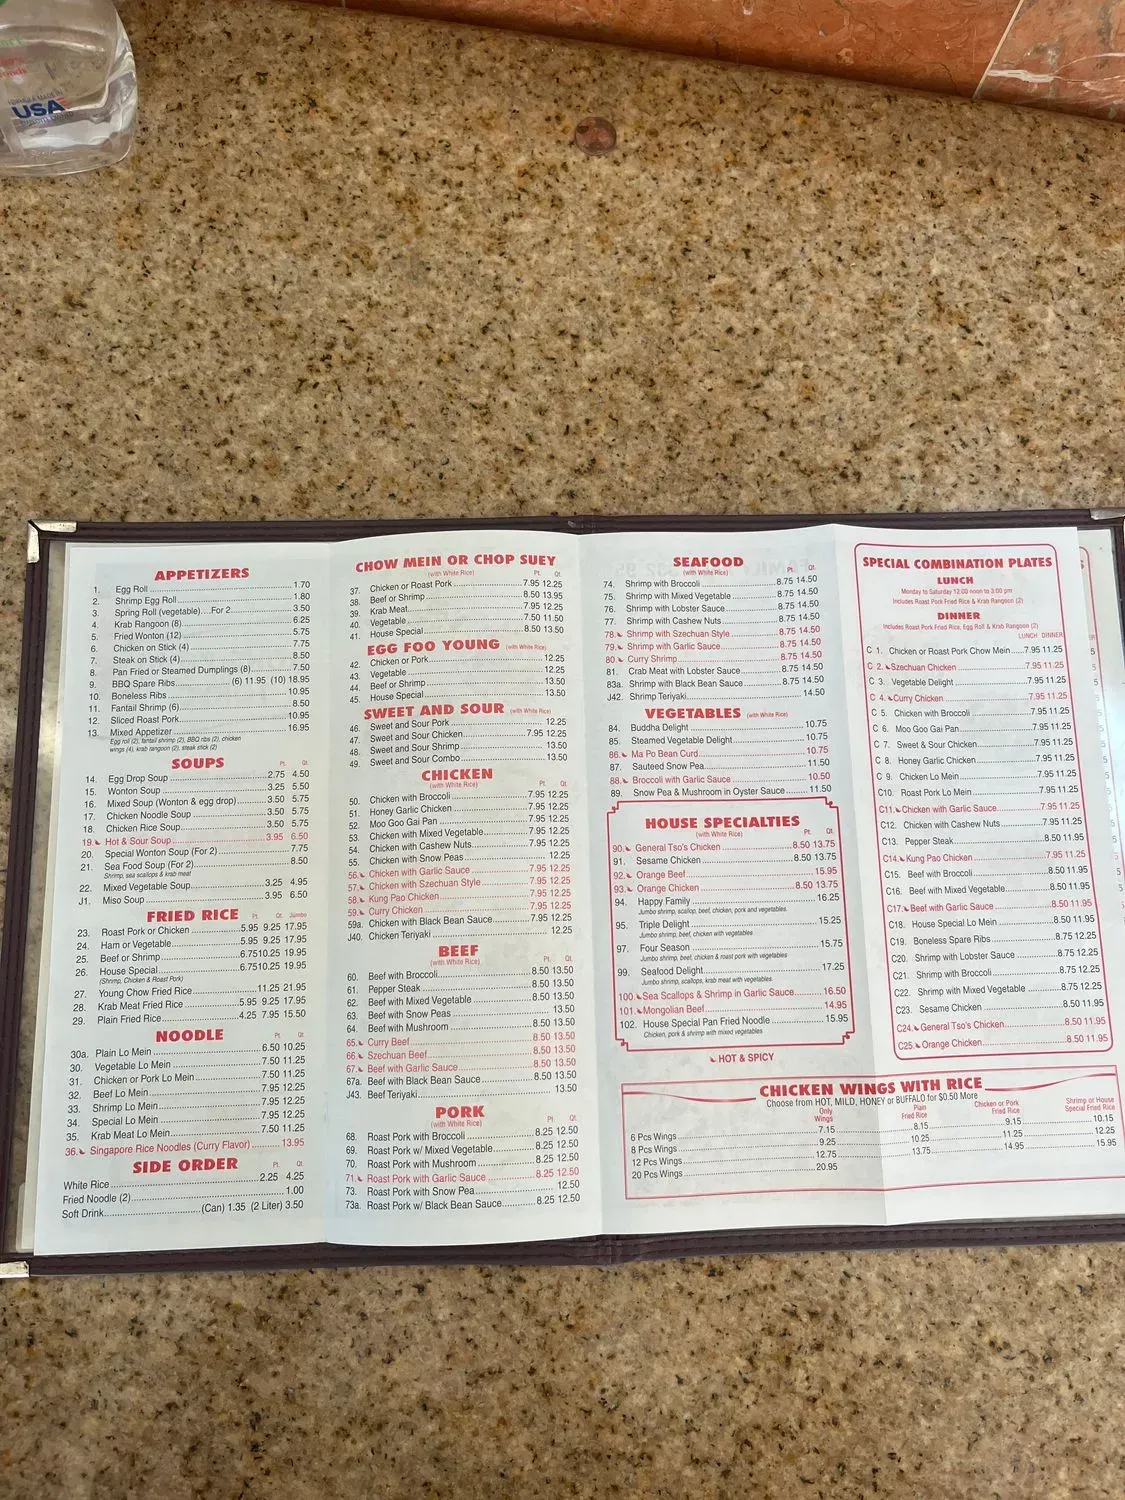 USA
APPETIZERS
1. Egg Roll 1.70
2. Shrimp Egg Roll 1.80
3. Spring Roll (vegetable)....For 2 3.50
4. Krab Rangoon (8) 6.25
5. Fried Wonton (12) 5.75
6. Chicken on Stick (4) 7.75
7. Steak on Stick (4) 8.50
8. Pan Fried or Steamed Dumplings (8) 7.50
9. BBQ Spare Ribs (6) 11.95 (10) 18.95
10. Boneless Ribs 10.95
11. Fantail Shrimp (6) 8.50
12. Sliced Roast Pork 10.95
13. Mixed Appetizer 16.95
Egg roll (2), fantail shrimp (2), BBQ ribs (2), chicken
wings (4), krab rangoon (2), steak stick (2)
SOUPS Pt. Qt.
14. Egg Drop Soup 2.75 4.50
15. Wonton Soup 3.25 5.50
16. Mixed Soup (Wonton & egg drop) 3.50 5.75
17. Chicken Noodle Soup 3.50 5.75
18. Chicken Rice Soup 3.50 5.75
19. Hot & Sour Soup 3.95 6.50
20. Special Wonton Soup (For 2) 7.75
21. Sea Food Soup (For 2) 8.50
Shrimp, sea scallops & krab meat
22. Mixed Vegetable Soup 3.25 4.95
J1. Miso Soup 3.95 6.50
FRIED RICE Pt. Qt. Jumbo
23. Roast Pork or Chicken 5.95 9.25 17.95
24. Ham or Vegetable 5.95 9.25 17.95
25. Beef or Shrimp 6.75 10.25 19.95
26. House Special 6.75 10.25 19.95
(Shrimp, Chicken & Roast Pork)
27. Young Chow Fried Rice 11.25 21.95
28. Krab Meat Fried Rice 5.95 9.25 17.95
29. Plain Fried Rice 4.25 7.95 15.50
NOODLE Pt. Qt.
30a. Plain Lo Mein 6.50 10.25
30. Vegetable Lo Mein 7.50 11.25
31. Chicken or Pork Lo Mein 7.50 11.25
32. Beef Lo Mein 7.95 12.25
33. Shrimp Lo Mein 7.95 12.25
34. Special Lo Mein 7.95 12.25
35. Krab Meat Lo Mein 7.50 11.25
36. Singapore Rice Noodles (Curry Flavor) 13.95
SIDE ORDER Pt. Qt.
White Rice 2.25 4.25
Fried Noodle (2) 1.00
Soft Drink (Can) 1.35 (2 Liter) 3.50
CHOW MEIN OR CHOP SUEY
(with White Rice) Pt. Qt.
37. Chicken or Roast Pork 7.95 12.25
38. Beef or Shrimp 8.50 13.95
39. Krab Meat 7.95 12.25
40. Vegetable 7.50 11.50
41. House Special 8.50 13.50
EGG FOO YOUNG (with White Rice)
42. Chicken or Pork 12.25
43. Vegetable 12.25
44. Beef or Shrimp 13.50
45. House Special 13.50
SWEET AND SOUR (with White Rice)
46. Sweet and Sour Pork 12.25
47. Sweet and Sour Chicken 7.95 12.25
48. Sweet and Sour Shrimp 13.50
49. Sweet and Sour Combo 13.50
CHICKEN
(with White Rice) Pt. Qt.
50. Chicken with Broccoli 7.95 12.25
51. Honey Garlic Chicken 7.95 12.25
52. Moo Goo Gai Pan 7.95 12.25
53. Chicken with Mixed Vegetable 7.95 12.25
54. Chicken with Cashew Nuts 7.95 12.25
55. Chicken with Snow Peas 12.25
56. Chicken with Garlic Sauce 7.95 12.25
57. Chicken with Szechuan Style 7.95 12.25
58. Kung Pao Chicken 7.95 12.25
59. Curry Chicken 7.95 12.25
59a. Chicken with Black Bean Sauce 7.95 12.25
J40. Chicken Teriyaki 12.25
BEEF
(with White Rice) Pt. Qt.
60. Beef with Broccoli 8.50 13.50
61. Pepper Steak 8.50 13.50
62. Beef with Mixed Vegetable 8.50 13.50
63. Beef with Snow Peas 13.50
64. Beef with Mushroom 8.50 13.50
65. Curry Beef 8.50 13.50
66. Szechuan Beef 8.50 13.50
67. Beef with Garlic Sauce 8.50 13.50
67a. Beef with Black Bean Sauce 8.50 13.50
J43. Beef Teriyaki 13.50
PORK Pt. Qt.
68. Roast Pork with Broccoli 8.25 12.50
69. Roast Pork w/ Mixed Vegetable 8.25 12.50
70. Roast Pork with Mushroom 8.25 12.50
71. Roast Pork with Garlic Sauce 8.25 12.50
73. Roast Pork with Snow Pea 12.50
73a. Roast Pork w/ Black Bean Sauce 8.25 12.50
SEAFOOD
(with White Rice) Pt. Qt.
74. Shrimp with Broccoli 8.75 14.50
75. Shrimp with Mixed Vegetable 8.75 14.50
76. Shrimp with Lobster Sauce 8.75 14.50
77. Shrimp with Cashew Nuts 8.75 14.50
78. Shrimp with Szechuan Style 8.75 14.50
79. Shrimp with Garlic Sauce 8.75 14.50
80. Curry Shrimp 8.75 14.50
81. Crab Meat with Lobster Sauce 8.75 14.50
83a. Shrimp with Black Bean Sauce 8.75 14.50
J42. Shrimp Teriyaki 14.50
VEGETABLES (with White Rice)
84. Buddha Delight 10.75
85. Steamed Vegetable Delight 10.75
86. Ma Po Bean Curd 10.75
87. Sauteed Snow Pea 11.50
88. Broccoli with Garlic Sauce 10.50
89. Snow Pea & Mushroom in Oyster Sauce 11.50
HOUSE SPECIALTIES
(with White Rice) Pt. Qt.
90. General Tso's Chicken 8.50 13.75
91. Sesame Chicken 8.50 13.75
92. Orange Beef 15.95
93. Orange Chicken 8.50 13.75
94. Happy Family 16.25
Jumbo shrimp, scallop, beef, chicken, pork and vegetables.
95. Triple Delight 15.25
Jumbo shrimp, beef, chicken with vegetables
97. Four Season 15.75
Jumbo shrimp, beef, chicken & roast pork with vegetables
99. Seafood Delight 17.25
Jumbo shrimp, scallops, krab meat with vegetables
100. Sea Scallops & Shrimp in Garlic Sauce 16.50
101. Mongolian Beef 14.95
102. House Special Pan Fried Noodle 15.95
Chicken, pork & shrimp with mixed vegetables
HOT & SPICY
SPECIAL COMBINATION PLATES
LUNCH
Monday to Saturday 12:00 noon to 3:00 pm
Includes Roast Pork Fried Rice & Krab Rangoon (2)
DINNER
Includes Roast Pork Fried Rice, Egg Roll & Krab Rangoon (2)
LUNCH DINNER
C 1. Chicken or Roast Pork Chow Mein 7.95 11.25
C 2. Szechuan Chicken 7.95 11.25
C 3. Vegetable Delight 7.95 11.25
C 4. Curry Chicken 7.95 11.25
C 5. Chicken with Broccoli 7.95 11.25
C 6. Moo Goo Gai Pan 7.95 11.25
C 7. Sweet & Sour Chicken 7.95 11.25
C 8. Honey Garlic Chicken 7.95 11.25
C 9. Chicken Lo Mein 7.95 11.25
C10. Roast Pork Lo Mein 7.95 11.25
C11. Chicken with Garlic Sauce 7.95 11.25
C12. Chicken with Cashew Nuts 7.95 11.25
C13. Pepper Steak 8.50 11.95
C14. Kung Pao Chicken 7.95 11.25
C15. Beef with Broccoli 8.50 11.95
C16. Beef with Mixed Vegetable 8.50 11.95
C17. Beef with Garlic Sauce 8.50 11.95
C18. House Special Lo Mein 8.50 11.95
C19. Boneless Spare Ribs 8.75 12.25
C20. Shrimp with Lobster Sauce 8.75 12.25
C21. Shrimp with Broccoli 8.75 12.25
C22. Shrimp with Mixed Vegetable 8.75 12.25
C23. Sesame Chicken 8.50 11.95
C24. General Tso's Chicken 8.50 11.95
C25. Orange Chicken 8.50 11.95
CHICKEN WINGS WITH RICE
Choose from HOT, MILD, HONEY or BUFFALO for $0.50 More
Only Wings Plain Fried Rice Chicken or Pork Fried Rice Shrimp or House Special Fried Rice
6 Pcs Wings 7.15 8.15 9.15 10.15
8 Pcs Wings 9.25 10.25 11.25 12.25
12 Pcs Wings 12.75 13.75 14.95 15.95
20 Pcs Wings 20.95